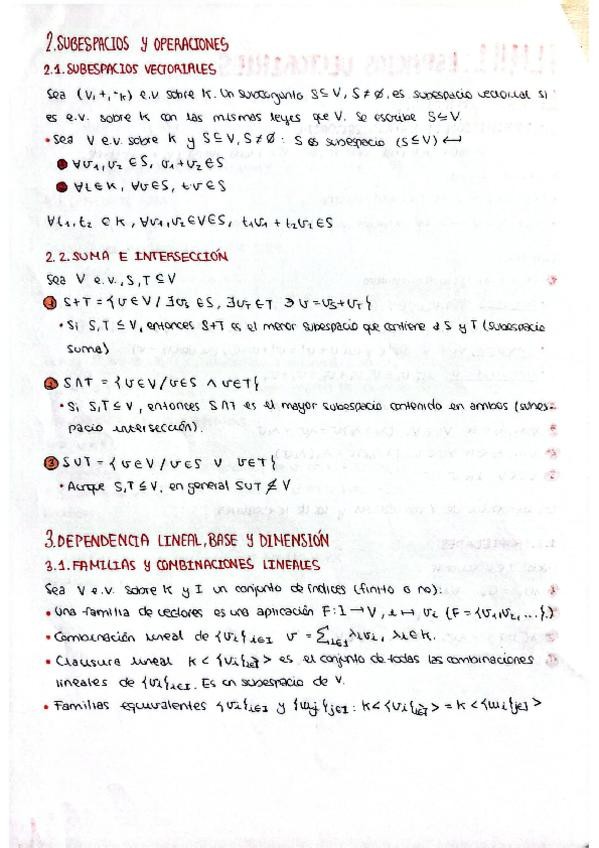 2. SUBESPACIOS Y OPERACIONES
2.1. SUBESPACIOS VECTORIALES
Sea (V, +, ·k) e.v sobre K. Un subconjunto S⊆V, S≠∅, es subespacio vectorial si
es e.v. sobre K con las mismas leyes que V. Se escribe S≤V.
• Sea V e.v. sobre K y S⊆V, S≠∅: S es subespacio (S≤V) ↔
● ∀v₁,v₂ ∈S, v₁+v₂∈S
● ∀t∈K, ∀v∈S, t·v∈S
∀t₁,t₂ ∈K, ∀v₁,v₂∈V∈S, t₁v₁ + t₂v₂∈S
2.2. SUMA E INTERSECCIÓN
Sea V e.v., S,T ⊆V
① S+T = {v∈V / ∃vs ∈S, ∃vT∈T ∋ v=vs+vT}
• Si S,T ≤V, entonces S+T es el menor subespacio que contiene a S y T (subespacio
suma)
② S∩T = {v∈V / v∈S ∧ v∈T}
• Si S,T≤V, entonces S∩T es el mayor subespacio contenido en ambos (subes-
pacio intersección).
③ S∪T = {v∈V / v∈S ∨ v∈T}
• Aunque S,T≤V, en general S∪T ≰ V
3. DEPENDENCIA LINEAL, BASE Y DIMENSIÓN
3.1. FAMILIAS Y COMBINACIONES LINEALES
Sea V e.v. sobre K y I un conjunto de índices (finito o no):
• Una familia de vectores es una aplicación F: I→V, i↦vᵢ (F={v₁,v₂,...}.)
• Combinación lineal de {vᵢ}i∈I v = ∑i∈J λᵢvᵢ, λᵢ∈K.
• Clausura lineal K<{vᵢ}i∈I> es el conjunto de todas las combinaciones
lineales de {vᵢ}i∈I. Es un subespacio de V.
• Familias equivalentes {vᵢ}i∈I y {wj}j∈J: K<{vᵢ}i∈I> = K<{wj}j∈J>